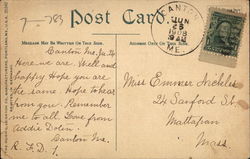 7-783
Post Card.
CANTON
JUN
28
1908
ME.
MESSAGE MAY BE WRITTEN ON THIS SIDE.
ADDRESS ONLY ON THIS SIDE.
Canton Me. Ju. 26
Here we are. Well and
happy. Hope you are
the same. Hope to hear
from you. Remember
me to all. Love from
Addie
Canton Me.
R.F.D. 1.
Miss Emma
24 Sanford St.
Mattapan
Mass.